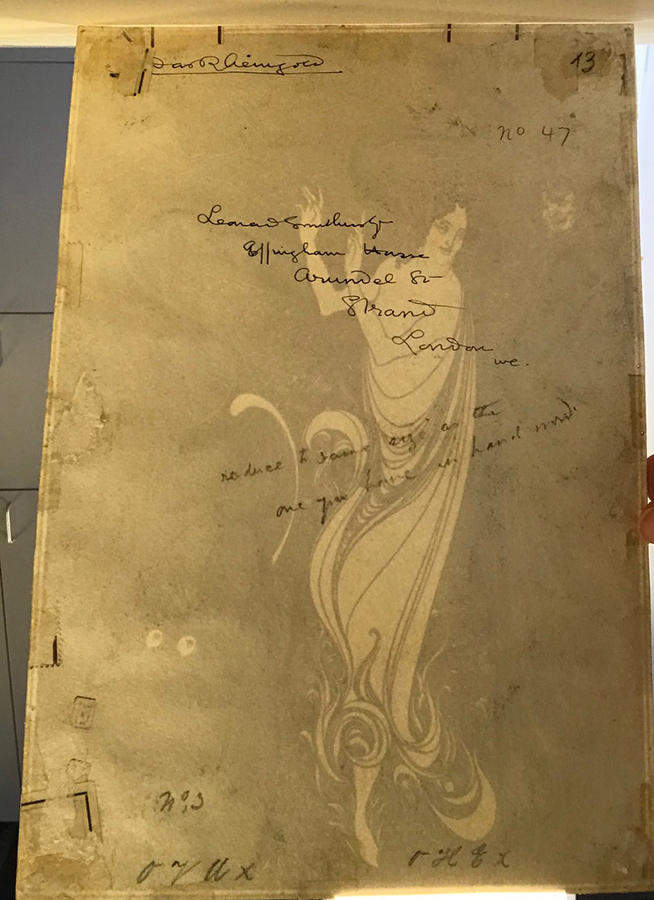 Das Rheingold
13
No 47
Leonard Smithers
Effingham House
Arundel St
Strand
London
W.C.
reduce to same size as the
one you have in hand now.
No. 3
O V U X
O H E X